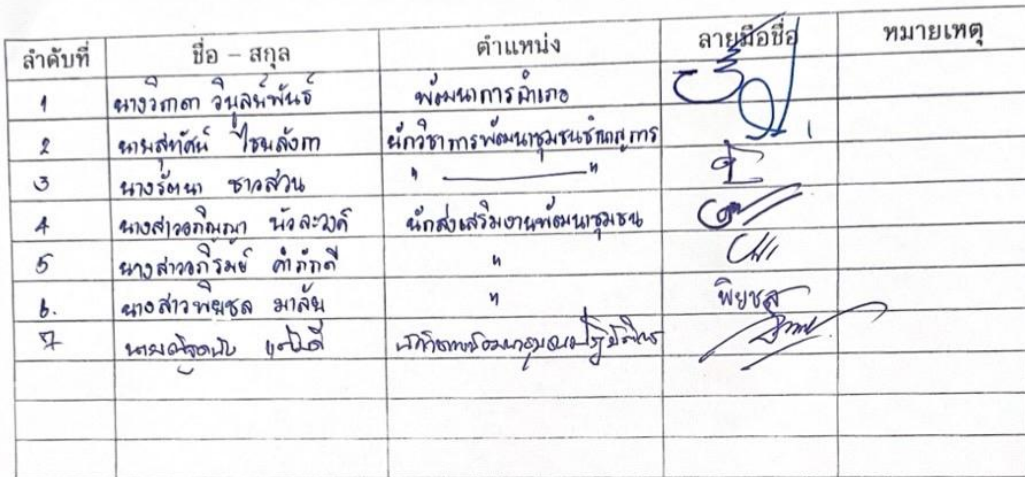 ลำดับที่ ชื่อ - สกุล ตำแหน่ง ลายมือชื่อ หมายเหตุ
1 นางวิภาดา วิบูลย์พันธ์ พัฒนาการอำเภอ
2 นายสุทัศน์ ไชยลังกา นักวิชาการพัฒนาชุมชนชำนาญการ
3 นางรัตนา ชาวสวน " "
4 นางสาวอภิญญา บัวละวงค์ นักส่งเสริมงานพัฒนาชุมชน
5 นางสาวอภิรมย์ คำภักดี "
6. นางสาวพิยชล มาลัย " พิยชล
7 นาย นักวิชาการพัฒนาชุมชนปฏิบัติการ